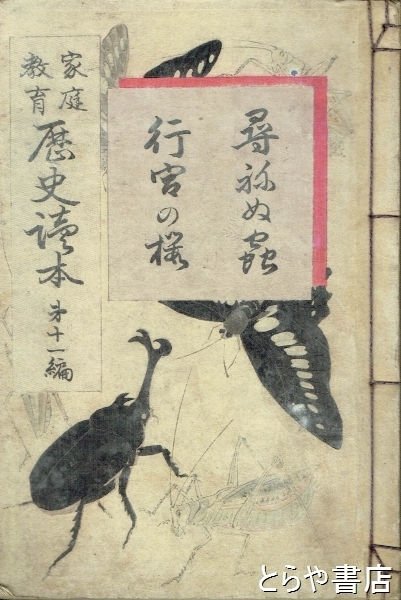 家庭
教育
歴史讀本 第十一編
尋ねぬ蟲
行宮の櫻
とらや書店